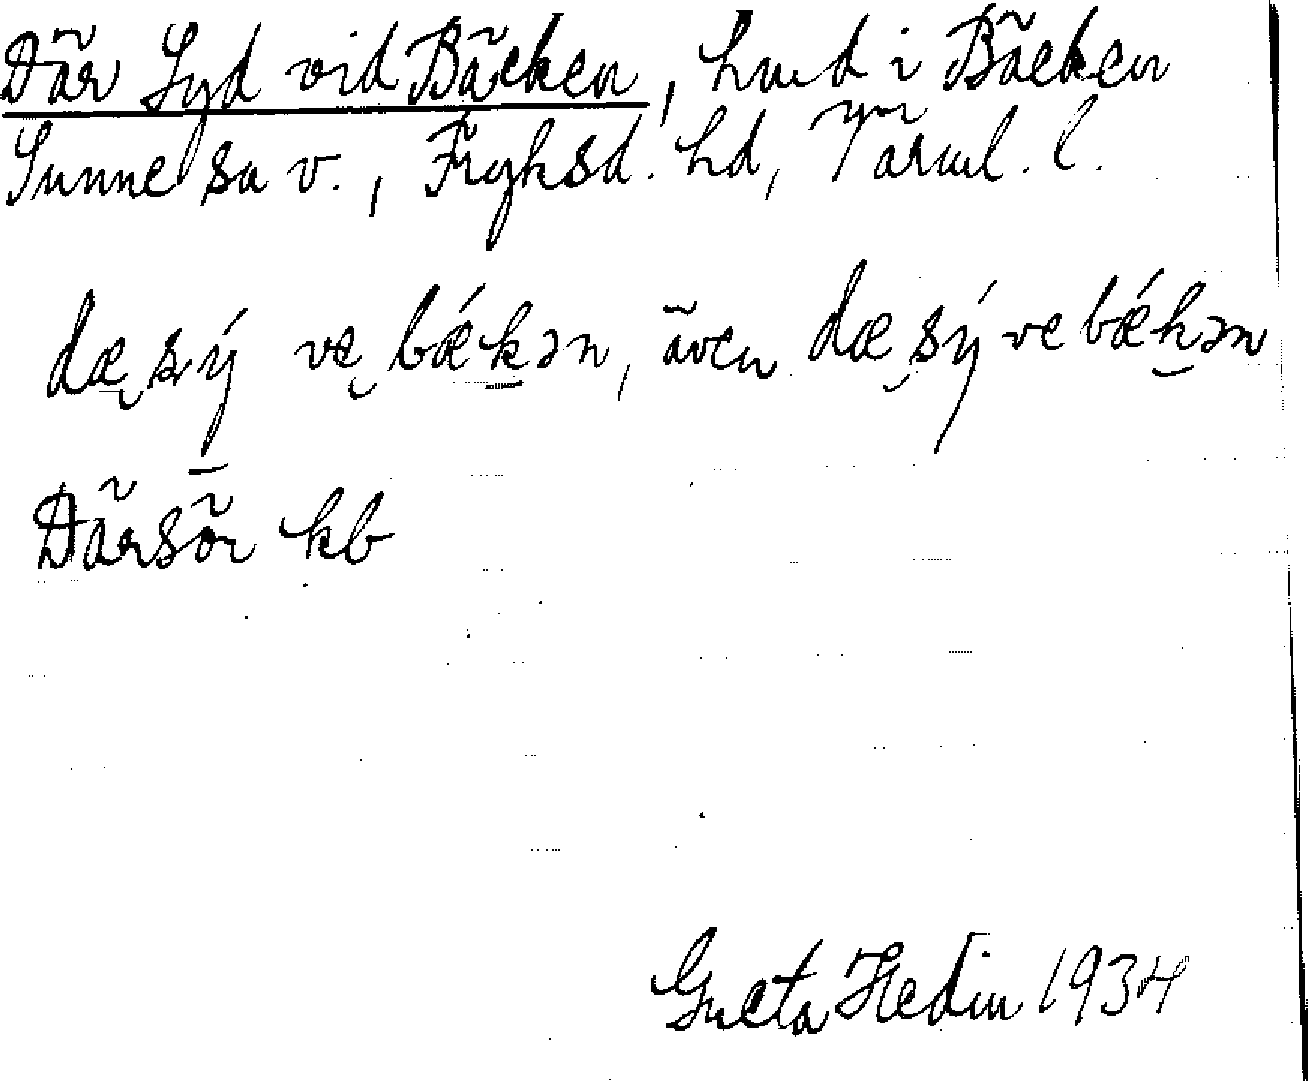 Där Syd vid Bäcken, hmd i Bäcken
Sunne sn v., Fryksd. hd, Värml. l.
dæ̨ sý vę bǽkən, även dæ̨ sý ve bǽkən
Därsör kb
Greta Hedin 1934